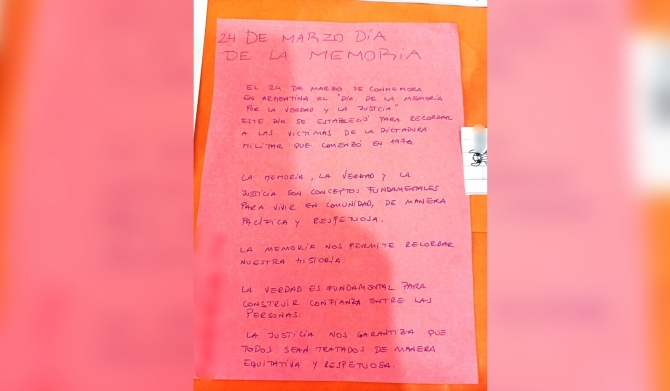 24 DE MARZO DÍA
DE LA MEMORIA
EL 24 DE MARZO SE CONMEMORA
EN ARGENTINA EL "DÍA DE LA MEMORIA
POR LA VERDAD Y LA JUSTICIA"
ESTE DÍA SE ESTABLECIÓ PARA RECORDAR
A LAS VICTIMAS DE LA DICTADURA
MILITAR QUE COMENZÓ EN 1976
LA MEMORIA, LA VERDAD Y LA
JUSTICIA SON CONCEPTOS FUNDAMENTALES
PARA VIVIR EN COMUNIDAD, DE MANERA
PACÍFICA Y RESPETUOSA.
LA MEMORIA NOS PERMITE RECORDAR
NUESTRA HISTORIA
LA VERDAD ES FUNDAMENTAL PARA
CONSTRUIR CONFIANZA ENTRE LAS
PERSONAS.
LA JUSTICIA NOS GARANTIZA QUE
TODOS SEAN TRATADOS DE MANERA
EQUITATIVA Y RESPETUOSA.